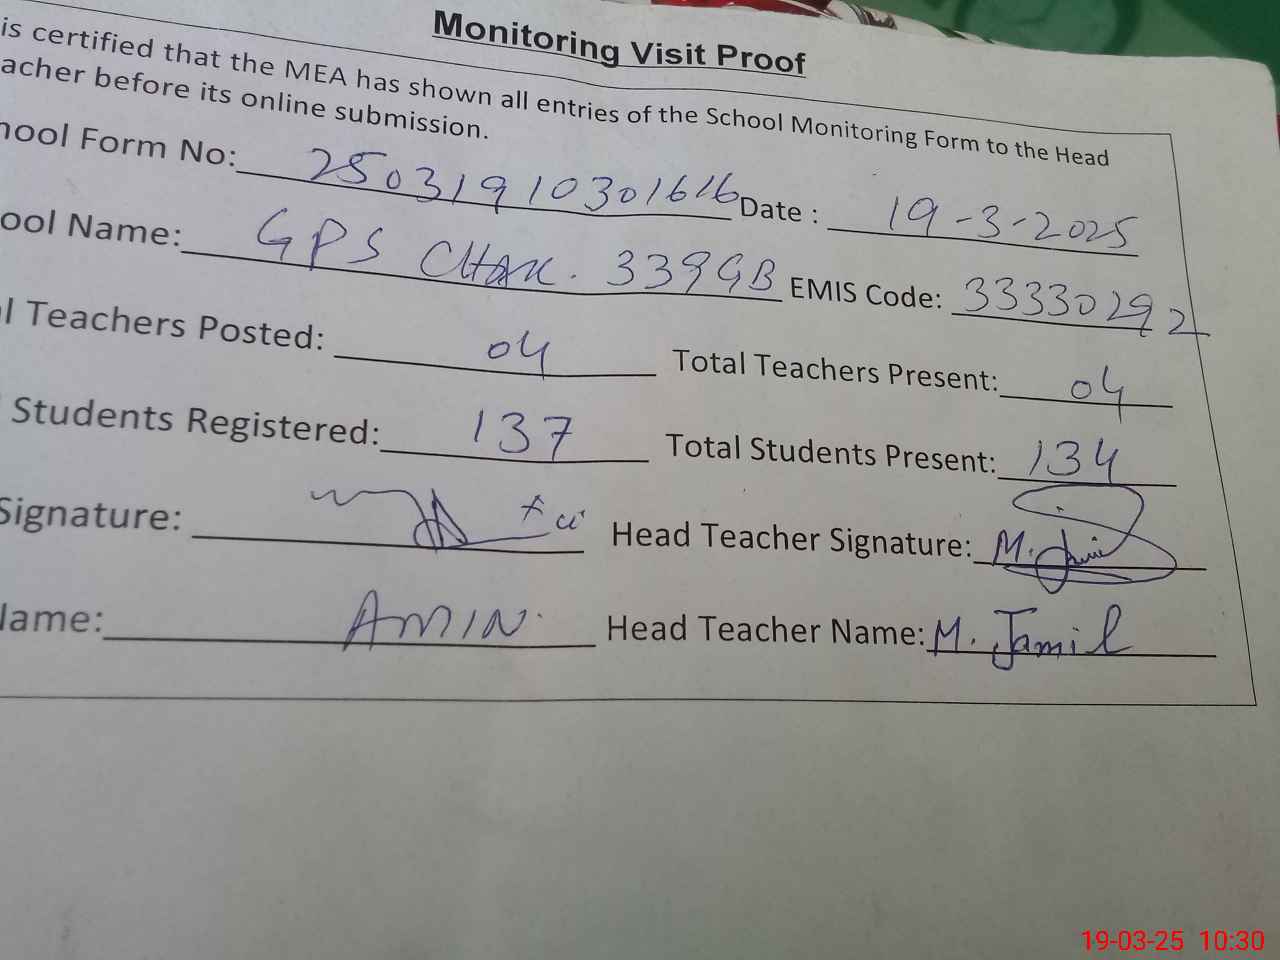 Monitoring Visit Proof
is certified that the MEA has shown all entries of the School Monitoring Form to the Head
acher before its online submission.
hool Form No: 25031910301616 Date : 19-3-2025
ool Name: GPS CHAK. 339GB EMIS Code: 33330292
l Teachers Posted: 04 Total Teachers Present: 04
Students Registered: 137 Total Students Present: 134
Signature: Head Teacher Signature: M. Jamil
Name: AMIN. Head Teacher Name: M. Jamil
19-03-25 10:30